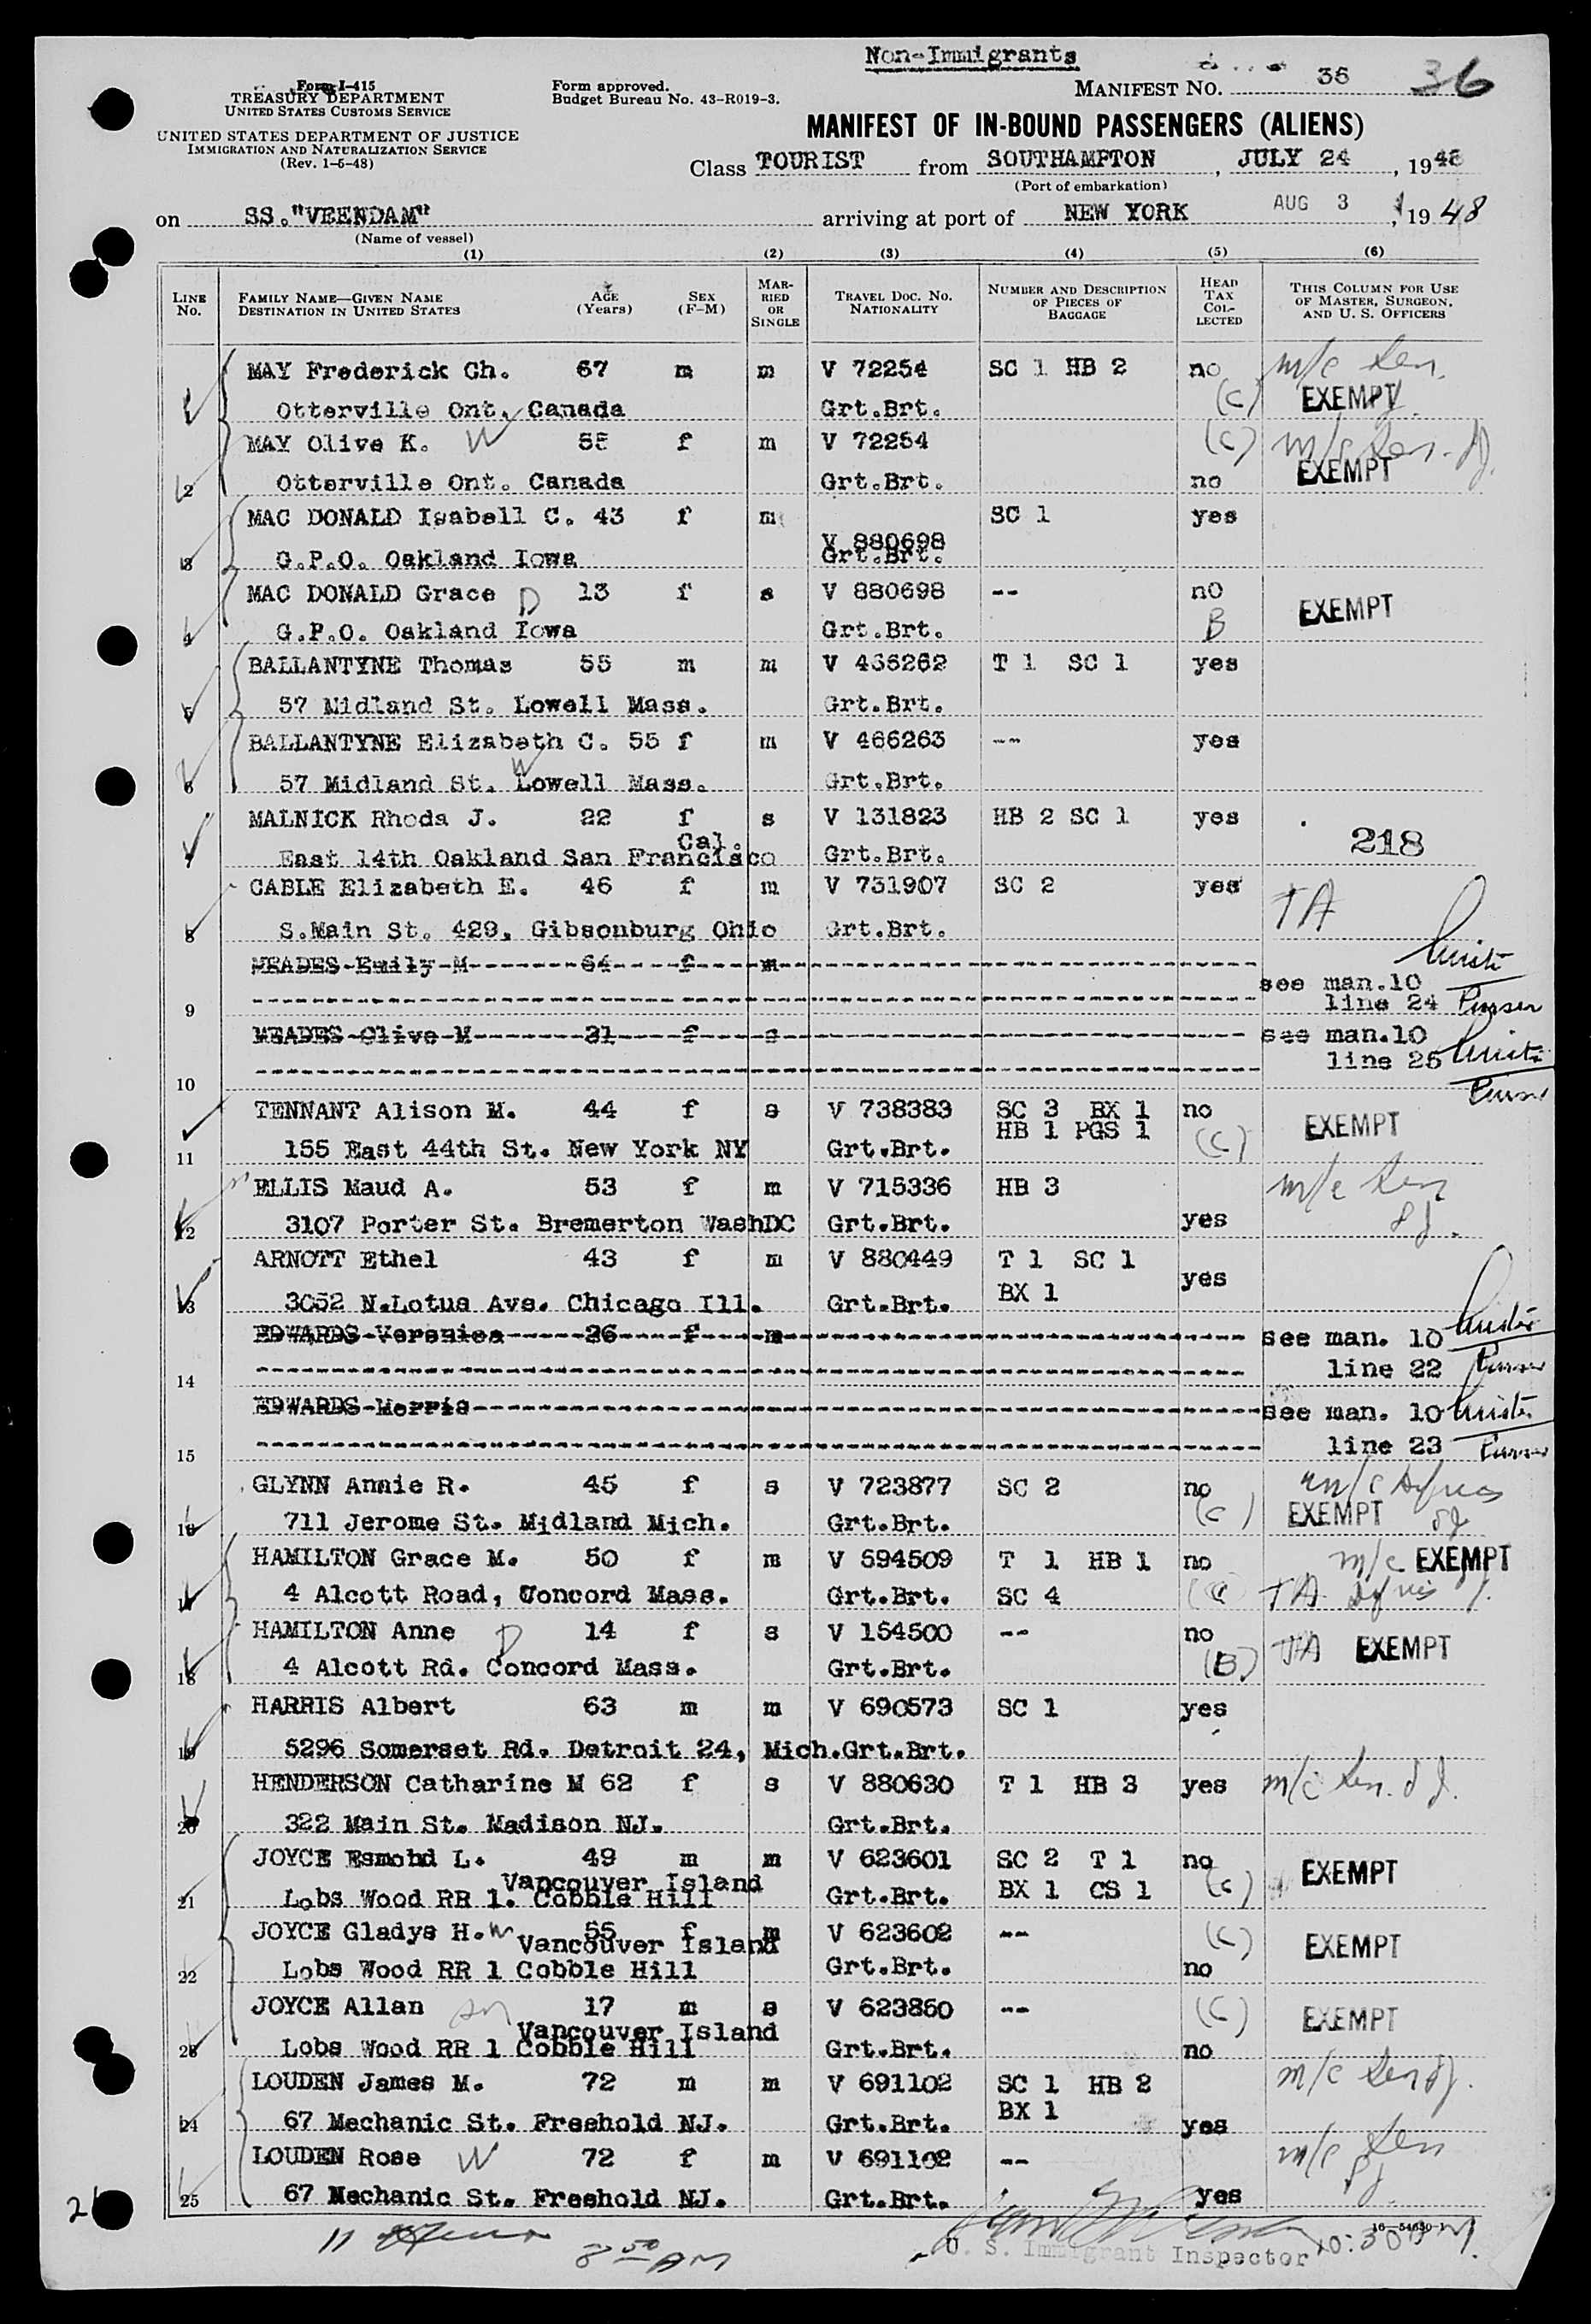 Non-Immigrants
Form I-415
TREASURY DEPARTMENT
UNITED STATES CUSTOMS SERVICE
UNITED STATES DEPARTMENT OF JUSTICE
IMMIGRATION AND NATURALIZATION SERVICE
(Rev. 1-5-48)
Form approved.
Budget Bureau No. 43-R019-3.
MANIFEST NO. 36 36
MANIFEST OF IN-BOUND PASSENGERS (ALIENS)
Class TOURIST from SOUTHAMPTON, JULY 24, 1948
(Port of embarkation)
on SS."VEENDAM" arriving at port of NEW YORK AUG 3, 1948
(Name of vessel)
(1) (2) (3) (4) (5) (6)
LINE NO. FAMILY NAME—GIVEN NAME DESTINATION IN UNITED STATES AGE (Years) SEX (F-M) MARRIED OR SINGLE TRAVEL DOC. NO. NATIONALITY NUMBER AND DESCRIPTION OF PIECES OF BAGGAGE HEAD TAX COLLECTED THIS COLUMN FOR USE OF MASTER, SURGEON, AND U. S. OFFICERS
MAY Frederick Ch. 67 m m V 72254 SC 1 HB 2 no m/c Sen.
1 Otterville Ont. Canada Grt.Brt. (C) EXEMPT
MAY Olive K. W f m V 72254 (C) m/c Sen.
2 Otterville Ont. Canada Grt.Brt. no EXEMPT
MAC DONALD Isabell C. 43 f m SC 1 yes
V 880698
3 G.P.O. Oakland Iowa Grt.Brt.
MAC DONALD Grace D 13 f s V 880698 -- no EXEMPT
4 G.P.O. Oakland Iowa Grt.Brt. B
BALLANTYNE Thomas 55 m m V 466262 T 1 SC 1 yes
5 57 Midland St. Lowell Mass. Grt.Brt.
BALLANTYNE Elizabeth C. 55 f m V 466263 -- yes
W
6 57 Midland St. Lowell Mass. Grt.Brt.
MALNICK Rhoda J. 22 f s V 131823 HB 2 SC 1 yes
Cal. 218
7 East 14th Oakland San Francisco Grt.Brt.
CABLE Elizabeth E. 46 f m V 731907 SC 2 yes TA
8 S.Main St. 429, Gibsonburg Ohio Grt.Brt.
MEADES Emily M 64 f m
see man.10
9 line 24 Purser
MEADES Olive M 31 f s see man.10
line 25
10 Purser
TENNANT Alison M. 44 f s V 738383 SC 3 BX 1 no EXEMPT
HB 1 PGS 1
11 155 East 44th St. New York NY Grt.Brt. (C)
ELLIS Maud A. 53 f m V 715336 HB 3 m/c Sen
12 3107 Porter St. Bremerton WashDC Grt.Brt. yes
ARNOTT Ethel 43 f m V 880449 T 1 SC 1 yes
BX 1
13 3052 N.Lotus Ave. Chicago Ill. Grt.Brt.
EDWARDS Veronica 26 f m see man. 10
14 line 22 Purser
EDWARDS Morris see man. 10
15 line 23 Purser
GLYNN Annie R. 45 f s V 723877 SC 2 no m/c
16 711 Jerome St. Midland Mich. Grt.Brt. (C) EXEMPT
HAMILTON Grace M. 50 f m V 594509 T 1 HB 1 no m/c EXEMPT
17 4 Alcott Road, Concord Mass. Grt.Brt. SC 4 (C) TA
HAMILTON Anne D 14 f s V 154500 -- no TA EXEMPT
18 4 Alcott Rd. Concord Mass. Grt.Brt. (B)
HARRIS Albert 63 m m V 690573 SC 1 yes
19 5296 Somerset Rd. Detroit 24, Mich.Grt.Brt.
HENDERSON Catharine M 62 f s V 880630 T 1 HB 3 yes m/c Sen.
20 322 Main St. Madison NJ. Grt.Brt.
JOYCE Esmond L. 49 m m V 623601 SC 2 T 1 no EXEMPT
Vancouver Island
21 Lobs Wood RR 1. Cobble Hill Grt.Brt. BX 1 CS 1 (C)
JOYCE Gladys H. W 55 f m V 623602 -- (C) EXEMPT
Vancouver Island
22 Lobs Wood RR 1 Cobble Hill Grt.Brt. no
JOYCE Allan Son 17 m s V 623860 -- (C) EXEMPT
Vancouver Island
23 Lobs Wood RR 1 Cobble Hill Grt.Brt. no
LOUDEN James M. 72 m m V 691102 SC 1 HB 2 m/c Sen
BX 1
24 67 Mechanic St. Freehold NJ. Grt.Brt. yes
LOUDEN Rose W 72 f m V 691102 -- m/c Sen
25 67 Mechanic St. Freehold NJ. Grt.Brt. yes
16—54650-1
U. S. Immigrant Inspector
8 50 AM